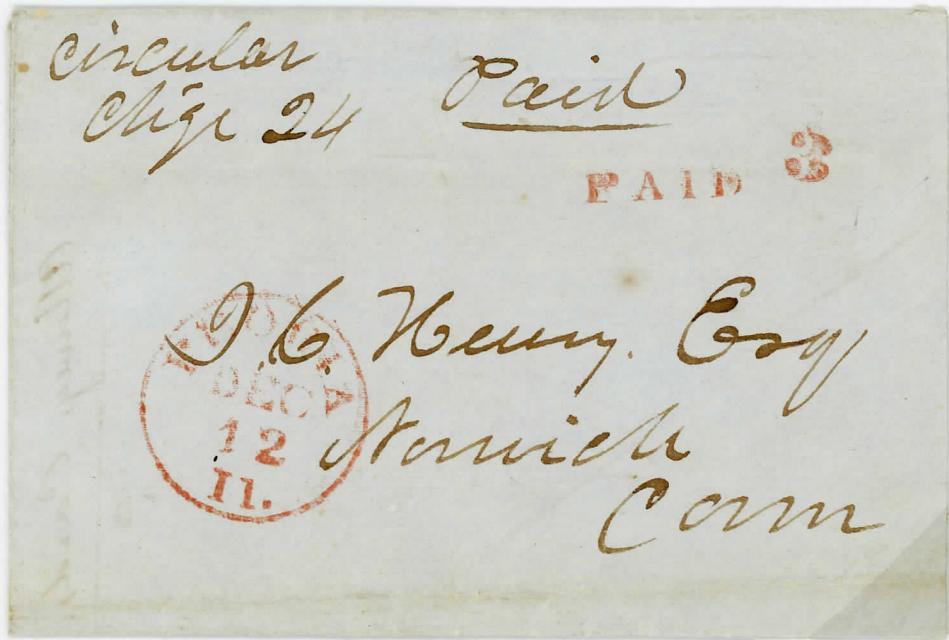 Circular
Chge 24
Paid
PAID 3
PEORIA
DEC
12
Il.
J. C. Henry. Esq
Norwich
Conn